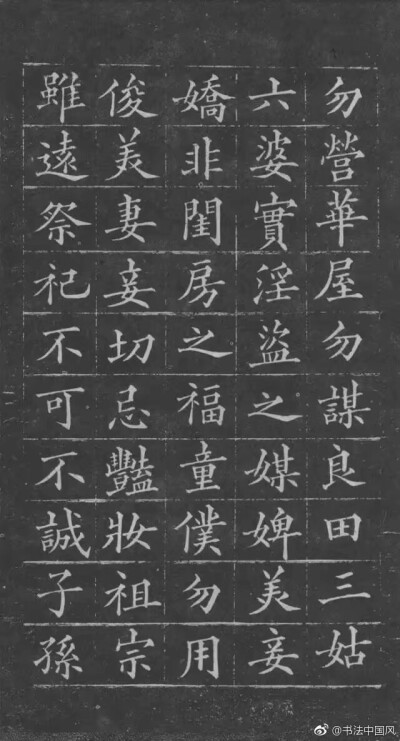 勿營華屋勿謀良田三姑
六婆實淫盜之媒婢美妾
嬌非閨房之福童僕勿用
俊美妻妾切忌豔妝祖宗
雖遠祭祀不可不誠子孫
@书法中国风